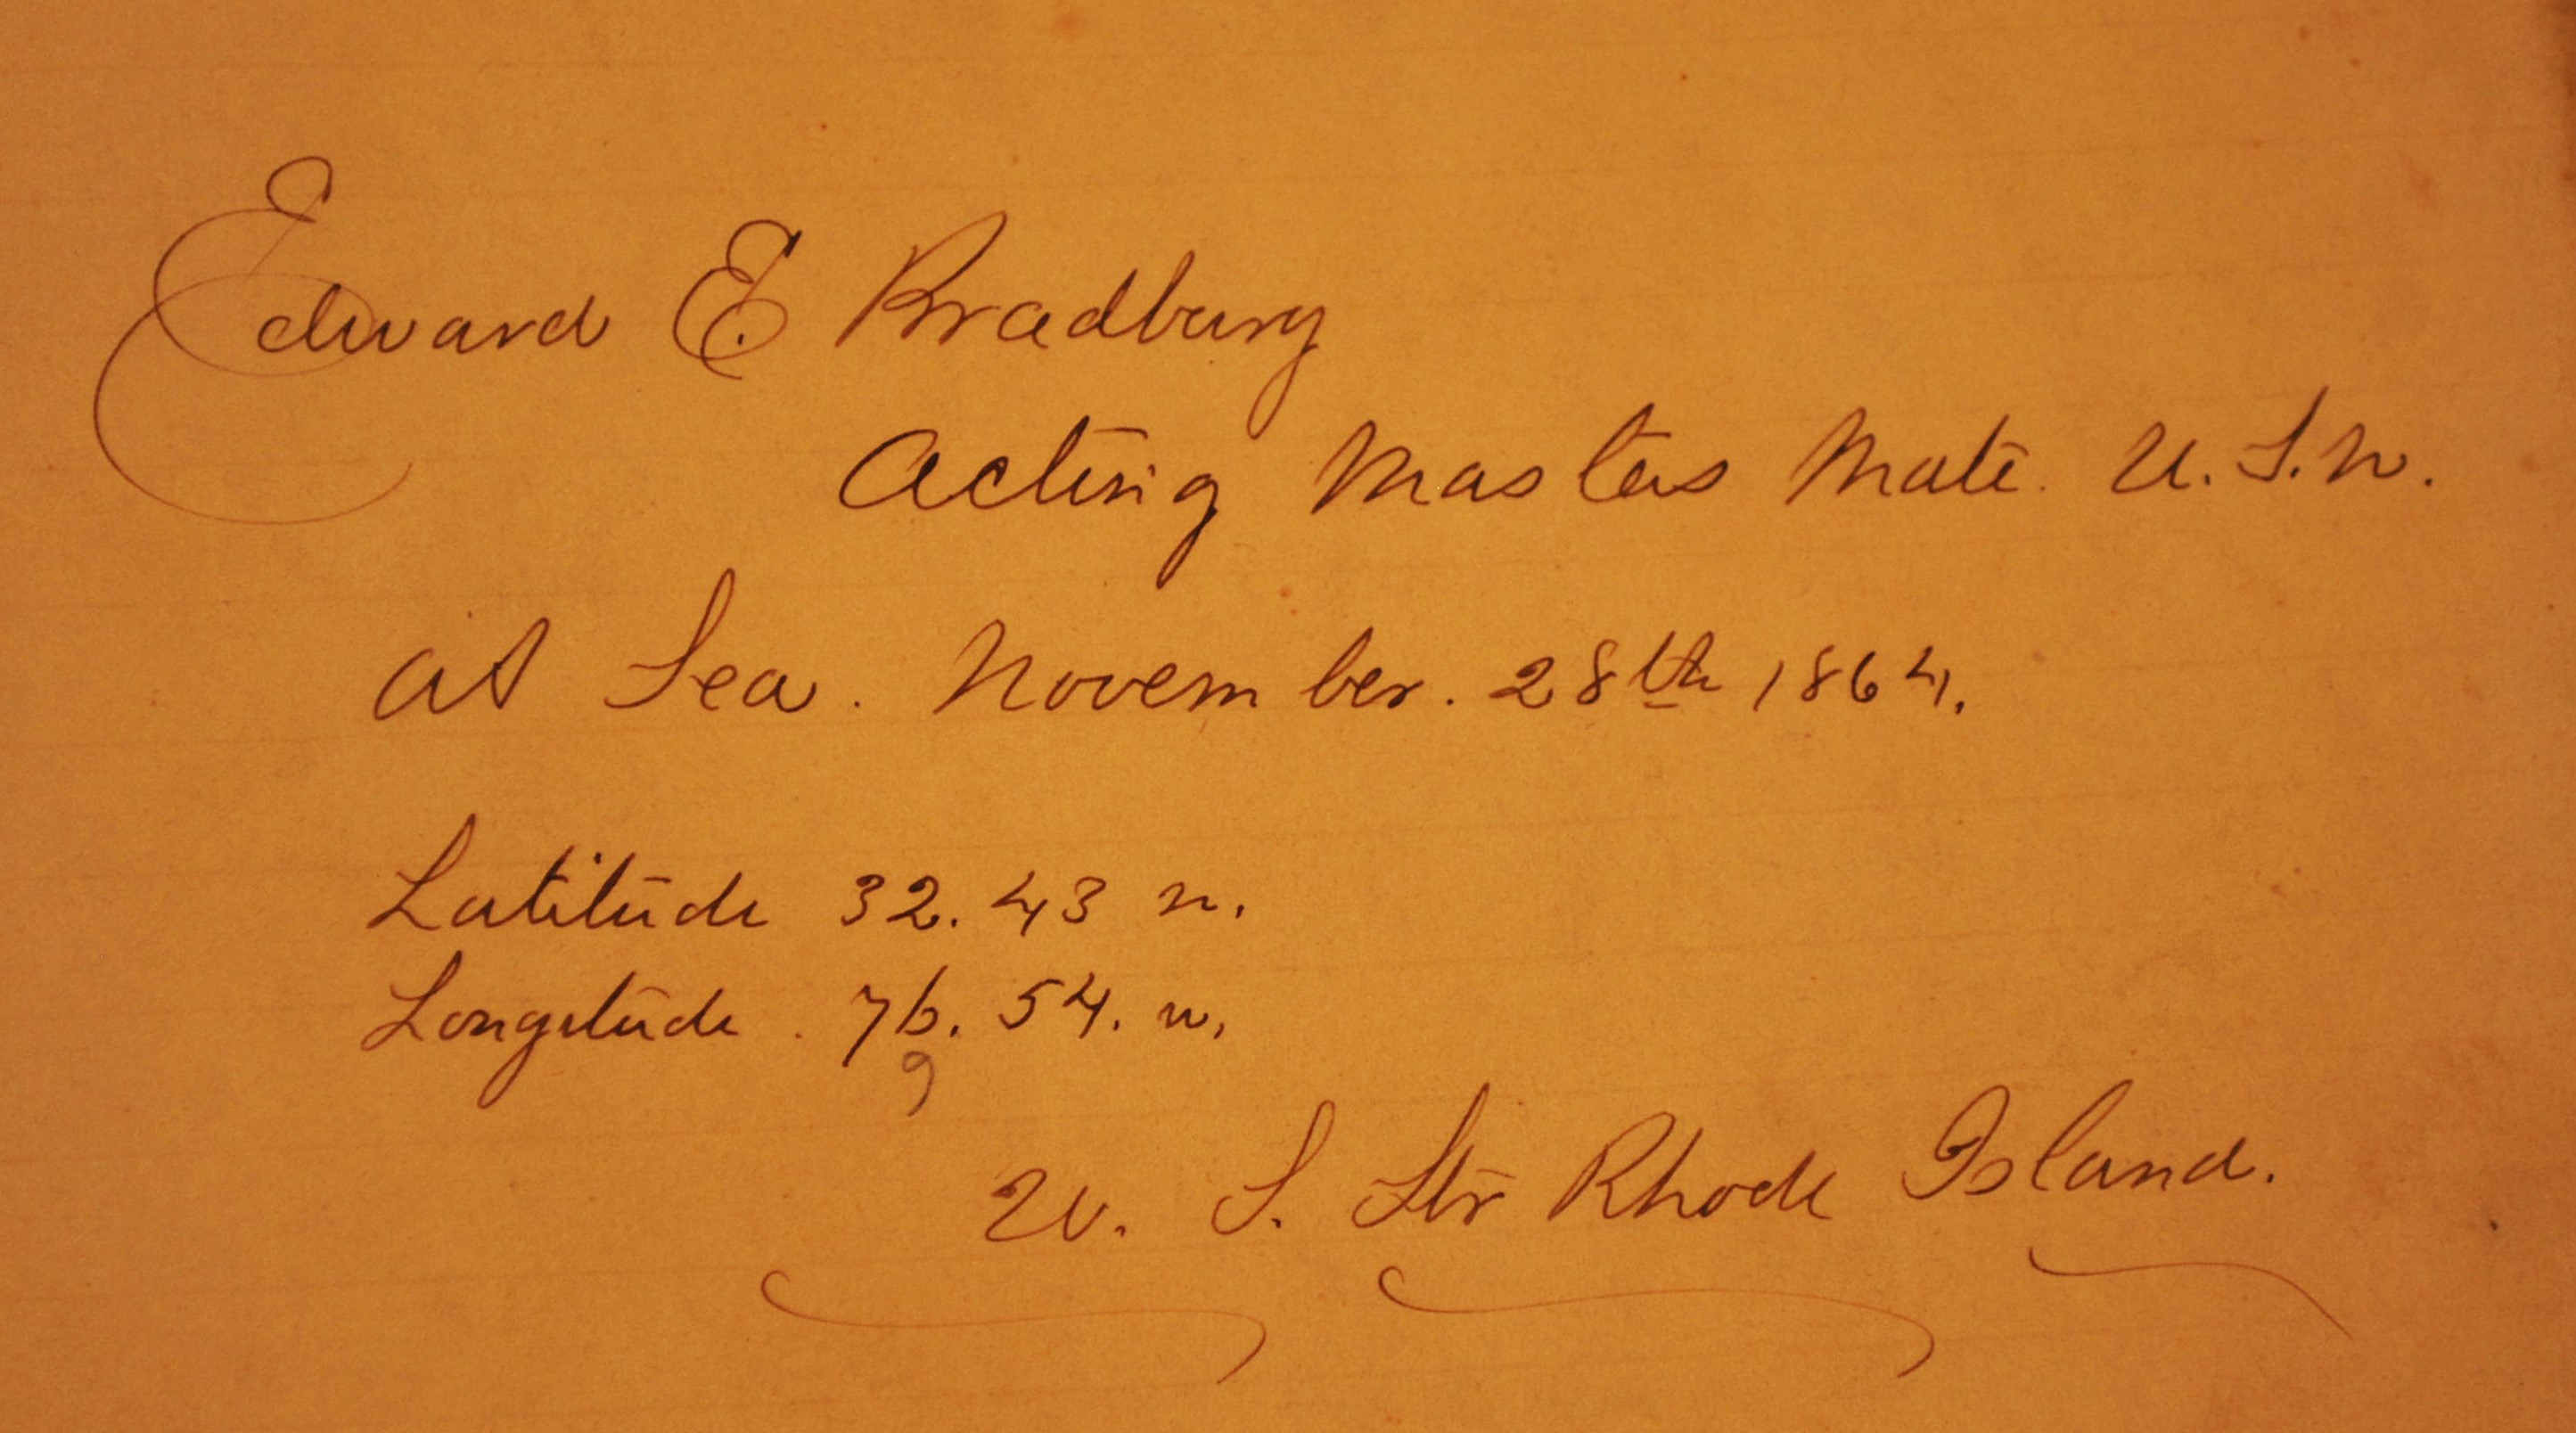 Edward E. Bradbury
Acting Masters Mate. U.S.N.
At Sea. November. 28th 1864.
Latitude 32. 43 N.
Longitude. 76. 54. W.
9
U. S. Str Rhode Island.